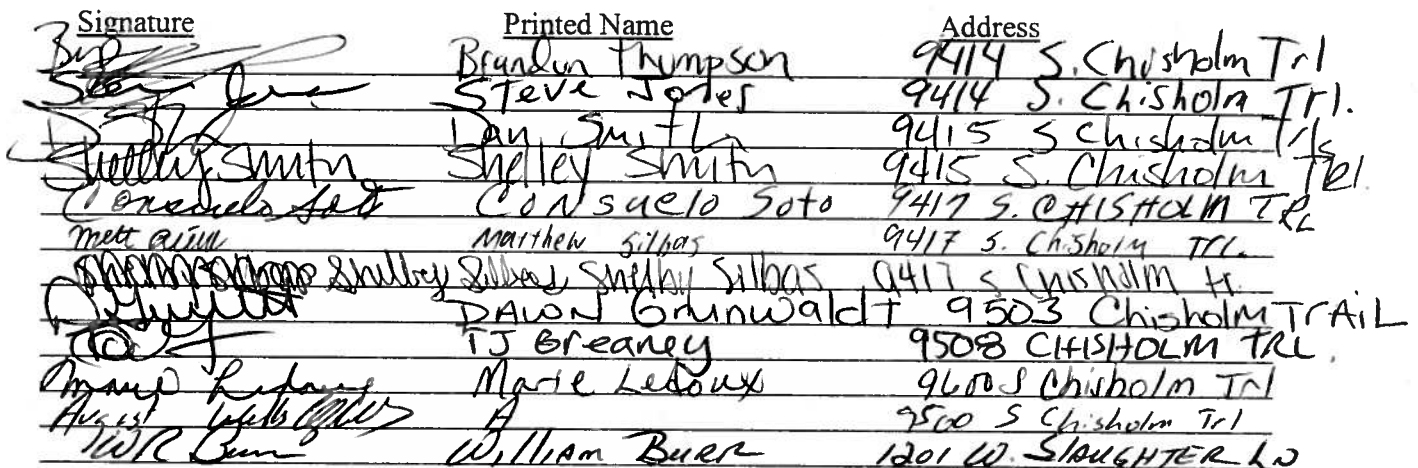 Signature Printed Name Address
Brandon Thompson 9414 S. Chisholm Trl
Steve Jones 9414 S. Chisholm Trl.
Dan Smith 9415 S Chisholm
Shelley Smith Shelley Smith 9415 S. Chisholm Trl
Consuelo Soto Consuelo Soto 9417 S. CHISHOLM TRL
Matthew Silbas 9417 S. Chisholm Trl.
Shelby Silbas Shelby Silbas 9417 S Chisholm tr.
DAWN Grunwaldt 9503 Chisholm TrAiL
TJ Greaney 9508 CHISHOLM TRL.
Marie Ledoux Marie Ledoux 9600 S Chisholm Trl
August A 9500 S Chisholm Trl
WR Burr William Burr 1201 W. SLAUGHTER LN